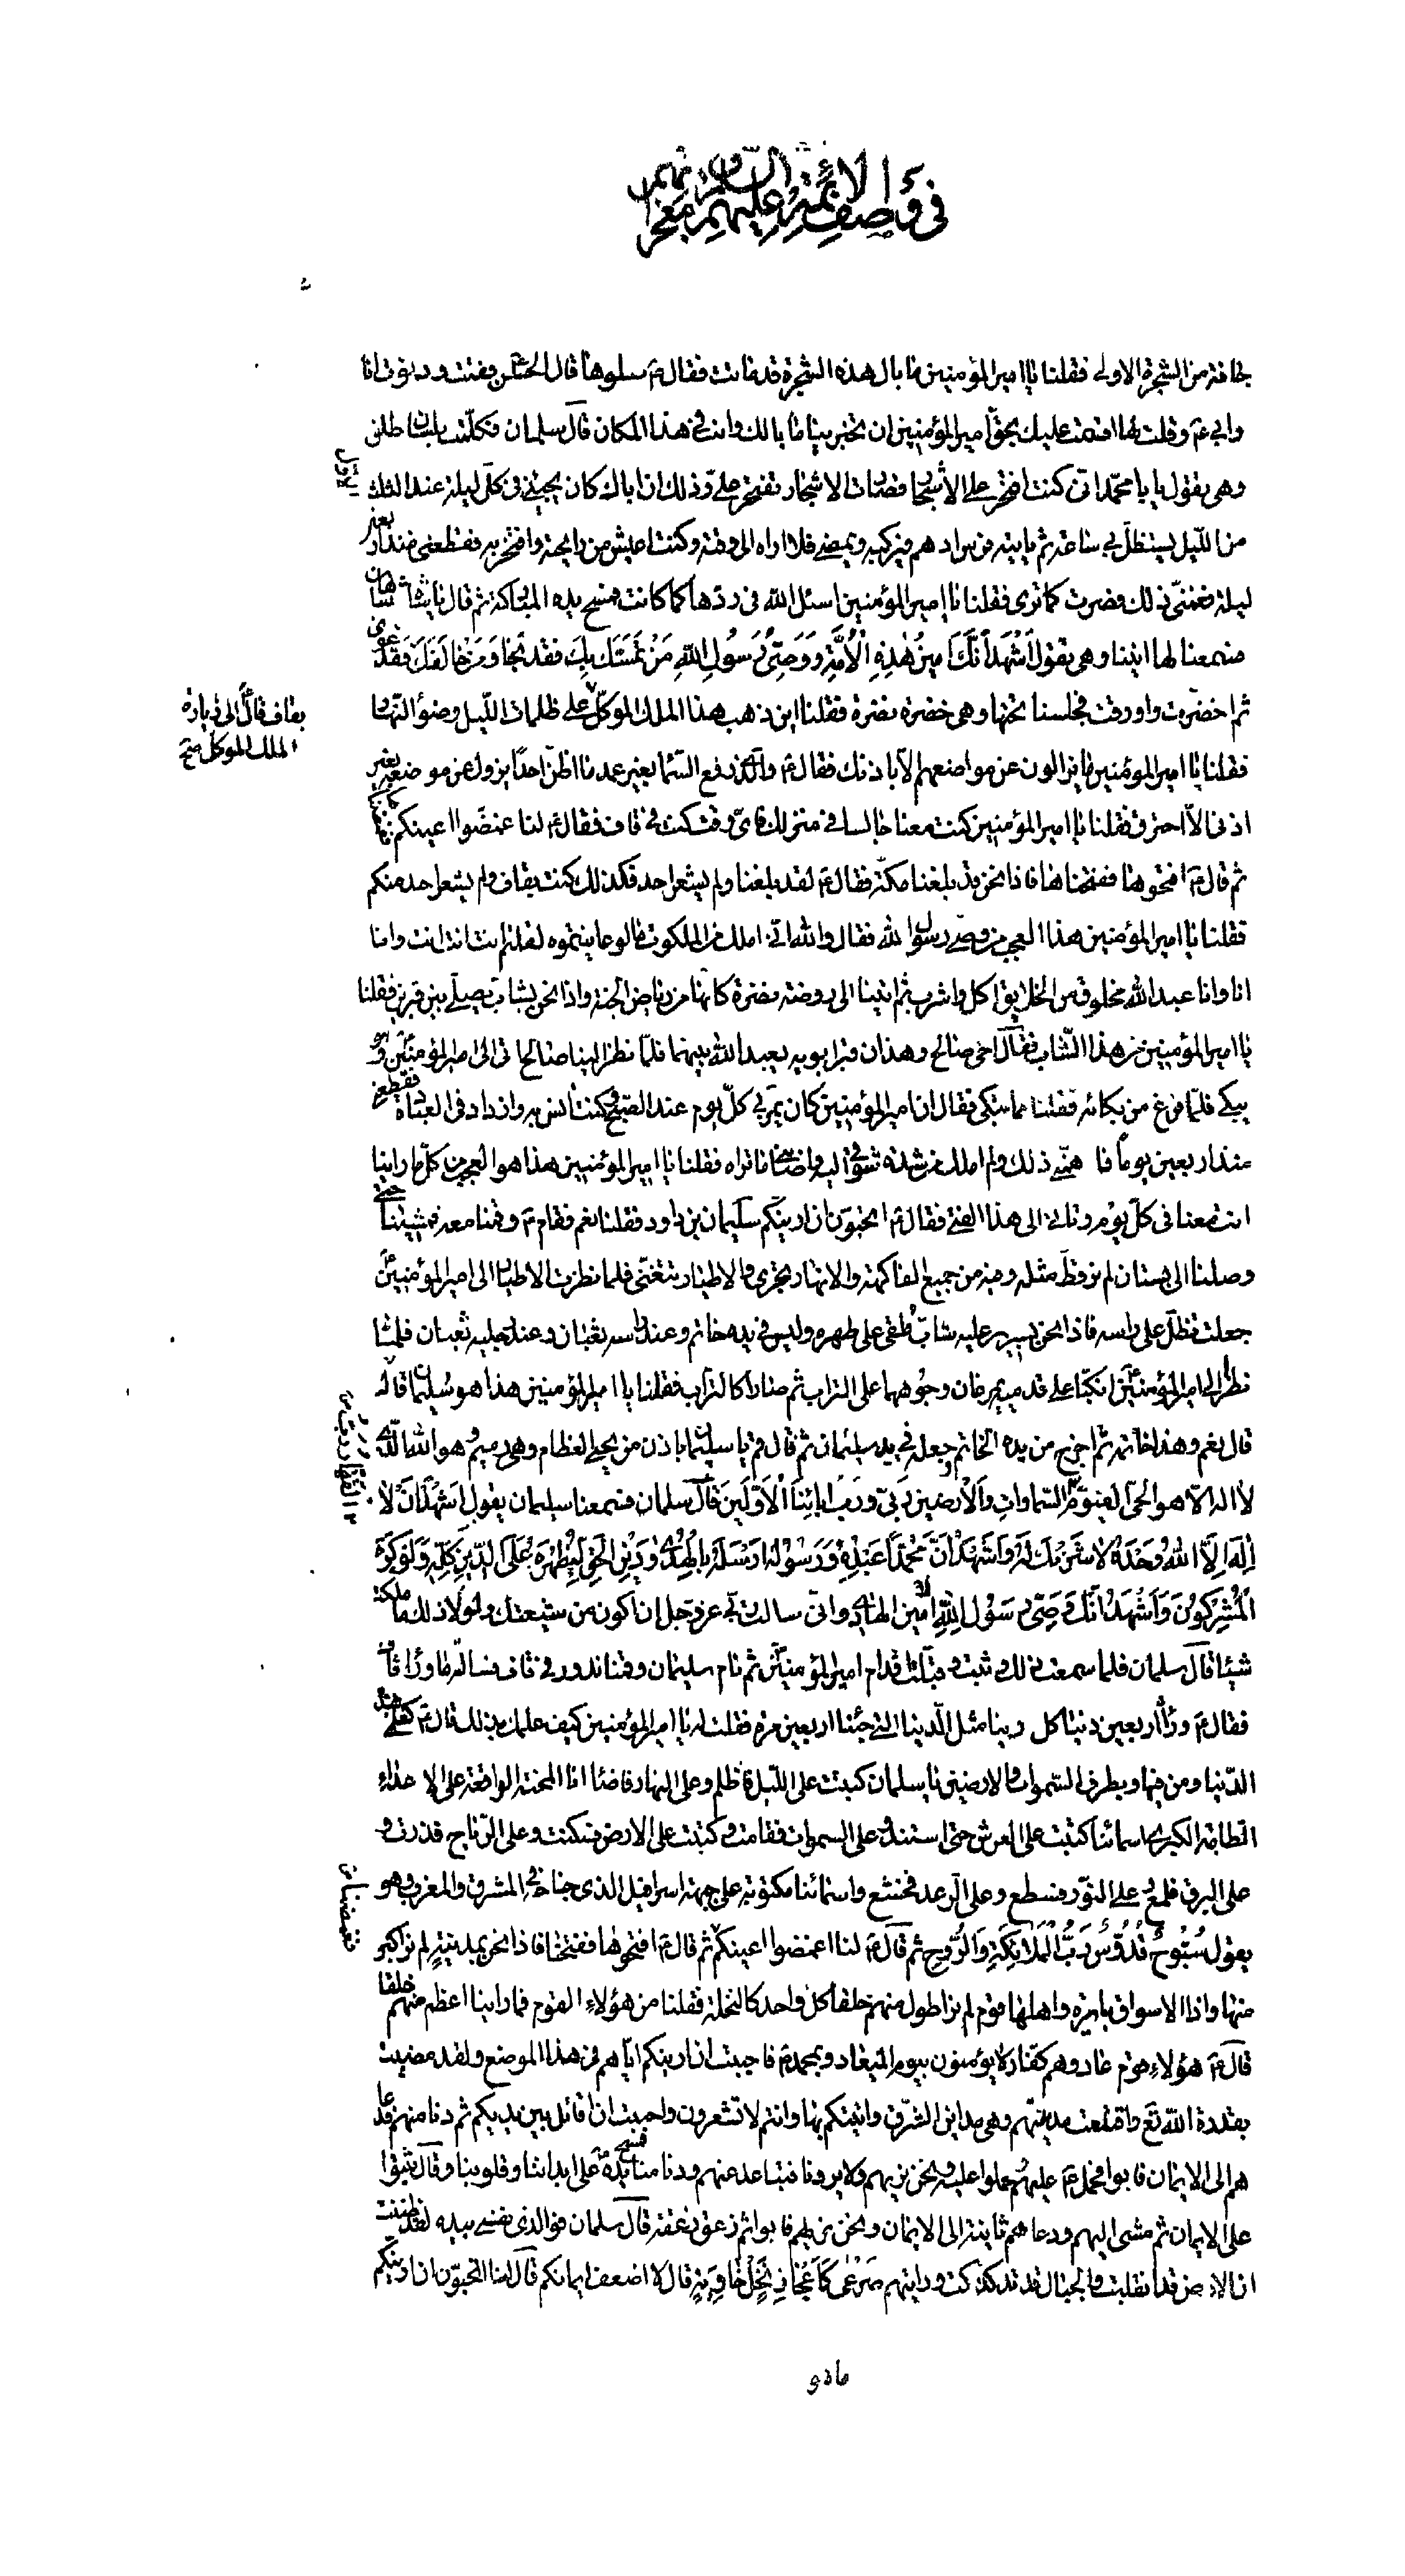 في وصف الائمة عليهم السلام
جافة من الشجرة الاولى فقلنا يا امير المؤمنين ما بال هذه الشجرة قد ماتت فقال ع سلوها قال الحسن فقمت ودنوت انا
وابي ع وقلت لها اقسمت عليك بحق امير المؤمنين ان تخبرينا ما بالك وانت في هذا المكان قال سلمان فكلمت بلسان طلق
وهي يقول يا با محمد اني كنت افتخر على الاشجار فصارت الاشجار تفتخر علي وذلك ان اباك كان يجيئني في كل ليلة عند الثلث
الاول
من الليل يستظل بي ساعة ثم ياتيه فرس ادهم فيركبه ويمضي فلا اراه الى وقته وكنت اعيش من رايحته وافتخر به فقطعني منذ اربعين
ليلة فغمني ذلك فصرت كما ترى فقلنا يا امير المؤمنين اسئل الله في ردها كما كانت فمسح يده المباركة ثم قال يا شاه شاهان
فسمعنا لها انينا وهي يقول اَشْهَدُ اَنَّكَ اَمينُ هٰذِهِ الْاُمَّةِ وَوَصِيُّ رَسُولِ اللهِ مَنْ تَمَسَّكَ بِكَ فَقَدْ نَجَا وَمَنْ خَالَفَكَ فَقَدْ غوى
ثم اخضرت واورقت فجلسنا تحتها وهي خضرة نضرة فقلنا اين ذهب هذا الملك الموكل على ظلمات الليل وضوء النهار
بقاف قال الى زيارة
الملك الموكل
فقلنا يا امير المؤمنين ما يزالون عن مواضعهم الا باذنك فقال ع والذي رفع السماء بغير عمد ما اظن احدا يزول عن موضعه بغير
اذني الا احترق فقلنا يا امير المؤمنين كنت معنا جالسا في منزلك فاي وقت كنت في قاف فقال ع لنا غمضوا اعينكم
ثم قال ع افتحوها ففتحناها فاذا نحن قد بلغنا مكة فقال ع لقد بلغنا ولم يشعر احد فكذلك كنت بقاف ولم يشعر احد منكم
فقلنا يا امير المؤمنين هذا العجب من وصي رسول الله فقال والله اني املك من الملكوت ما لو عاينتموه لقلتم انت انت انت وانا
انا وانا عبد الله مخلوق من الخلايق اكل واشرب ثم اتينا الى روضة نضرة كانها من رياض الجنة واذا نحن بشاب يصلي بين قبرين فقلنا
يا امير المؤمنين من هذا الشاب فقال اخي صالح وهذان قبرا ابويه يعبد الله بينهما فلما نظر الينا صالح اتى الى امير المؤمنين وهو
يبكي فلما فرغ من بكائه فقلنا مما تبكي فقال ان امير المؤمنين كان يمر بي كل يوم عند الصبح وكنت انس به وازداد في العبادة فقطعني
منذ اربعين يوما فاهمني ذلك ولم املك من شدة شوقي اليه واصابني ما تراه فقلنا يا امير المؤمنين هذا هو العجب من كل ما راينا
انت معنا في كل يوم وتاتي الى هذا الفتى فقال ع اتحبون ان اريكم سليمان بن داود فقلنا نعم فقام ع وقمنا معه فمشينا حتى
وصلنا الى بستان لم نر قط مثله وفيه من جميع الفاكهة والانهار تجري والاطيار تتغنى فلما نظرت الاطيار الى امير المؤمنين ع
جعلت تظل على راسه فاذا نحن بسرير عليه شاب ملقى على ظهره وليس في يده خاتم وعند راسه ثعبان وعند رجليه ثعبان فلما
نظرا الى امير المؤمنين انكبا على قدميه يمرغان وجوههما على التراب ثم صارا كالتراب فقلنا يا امير المؤمنين هذا هو سليمان
قال نعم وهذا خاتمه ثم اخرج من يده الخاتم وجعله في يد سليمان ثم قال قم يا سليمان باذن من يحيي العظام وهي رميم وهو الله الذي
لا اله الا هو الحي القيوم السماوات والارضين ربي ورب ابائنا الاولين قال سلمان فسمعنا سليمان يقول اشهد ان لا
اِلٰهَ اِلَّا اللهُ وَحْدَهُ لَا شَرِيكَ لَهُ وَاَشْهَدُ اَنَّ مُحَمَّدًا عَبْدُهُ وَرَسُولُهُ اَرْسَلَهُ بِالْهُدٰى وَدِينِ الْحَقِّ لِيُظْهِرَهُ عَلَى الدِّينِ كُلِّهِ وَلَوْ كَرِهَ
الْمُشْرِكُونَ وَاَشْهَدُ اَنَّكَ وَصِيُّ رَسُولِ اللهِ الامين الهادي واني سالت ربي عز وجل ان اكون من شيعتك ولولا ذلك ما ملكت
شيئا قال سلمان فلما سمعت ذلك وثبت وقبلت اقدام امير المؤمنين ثم نام سليمان وقمنا ندور في قاف فسالته ما وراء قاف
فقال ع وراءه اربعين دنيا كل دنيا مثل الدنيا التي جئنا اربعين مرة فقلت له يا امير المؤمنين كيف علمك بذلك قال ع كعلمي بهذه
الدنيا ومن فيها وبطرق السموات والارضين يا سلمان كتبت على الليل فاظلم وعلى النهار فاضاء انا المحنة الواقعة على الاعداء
الطامة الكبرى اسمائنا كتبت على العرش حتى استند وعلى السموات فقامت وكتبت على الارض فسكنت وعلى الرياح فذرت و
على البرق فلمع وعلى النور فسطع وعلى الرعد فخشع واسمائنا مكتوبة على جبهة اسرافيل الذي جناحه في المشرق والمغرب وهو
يقول سُبُّوحٌ قُدُّوسٌ رَبُّ الْمَلَائِكَةِ وَالرُّوحِ ثم قال ع لنا اغمضوا اعينكم ثم قال ع افتحوها ففتحنا فاذا نحن بمدينة لم نر اكبر
منها واذا الاسواق بايرة واهلها قوم لم نر اطول منهم خلقا كل واحد كالنخلة فقلنا من هؤلاء القوم فما راينا اعظم منهم خلقا
قال ع هؤلاء قوم عاد وهم كفار لا يؤمنون بيوم الميعاد وبمحمد ع فاحببت ان اريكم اياهم في هذا الموضع ولقد مضيت
بقدرة الله تع واقتلعت مدينتهم وهي مداين الشرق واتيتكم بها وانتم لا تشعرون واحببت ان اقاتل بين يديكم ثم دنا منهم فدعا
هم الى الايمان فابوا فحمل ع عليهم وحملوا عليه ونحن نريهم ولا يرونا فتباعد عنهم ودنا منا فمسح يده على ابداننا وقلوبنا وقال ثبتوا
على الايمان ثم مشى اليهم ودعاهم ثانية الى الايمان ونحن نريهم فابوا ثم زعق زعقة قال سلمان فوالذي نفسي بيده لقد ظننت
ان الارض قد انقلبت والجبال قد تدكدكت ورايتهم صَرْعٰى كَاَعْجَازِ نَخْلٍ خَاوِيَةٍ قال لا اضعف ايمانكم قال لنا اتحبون ان اريكم